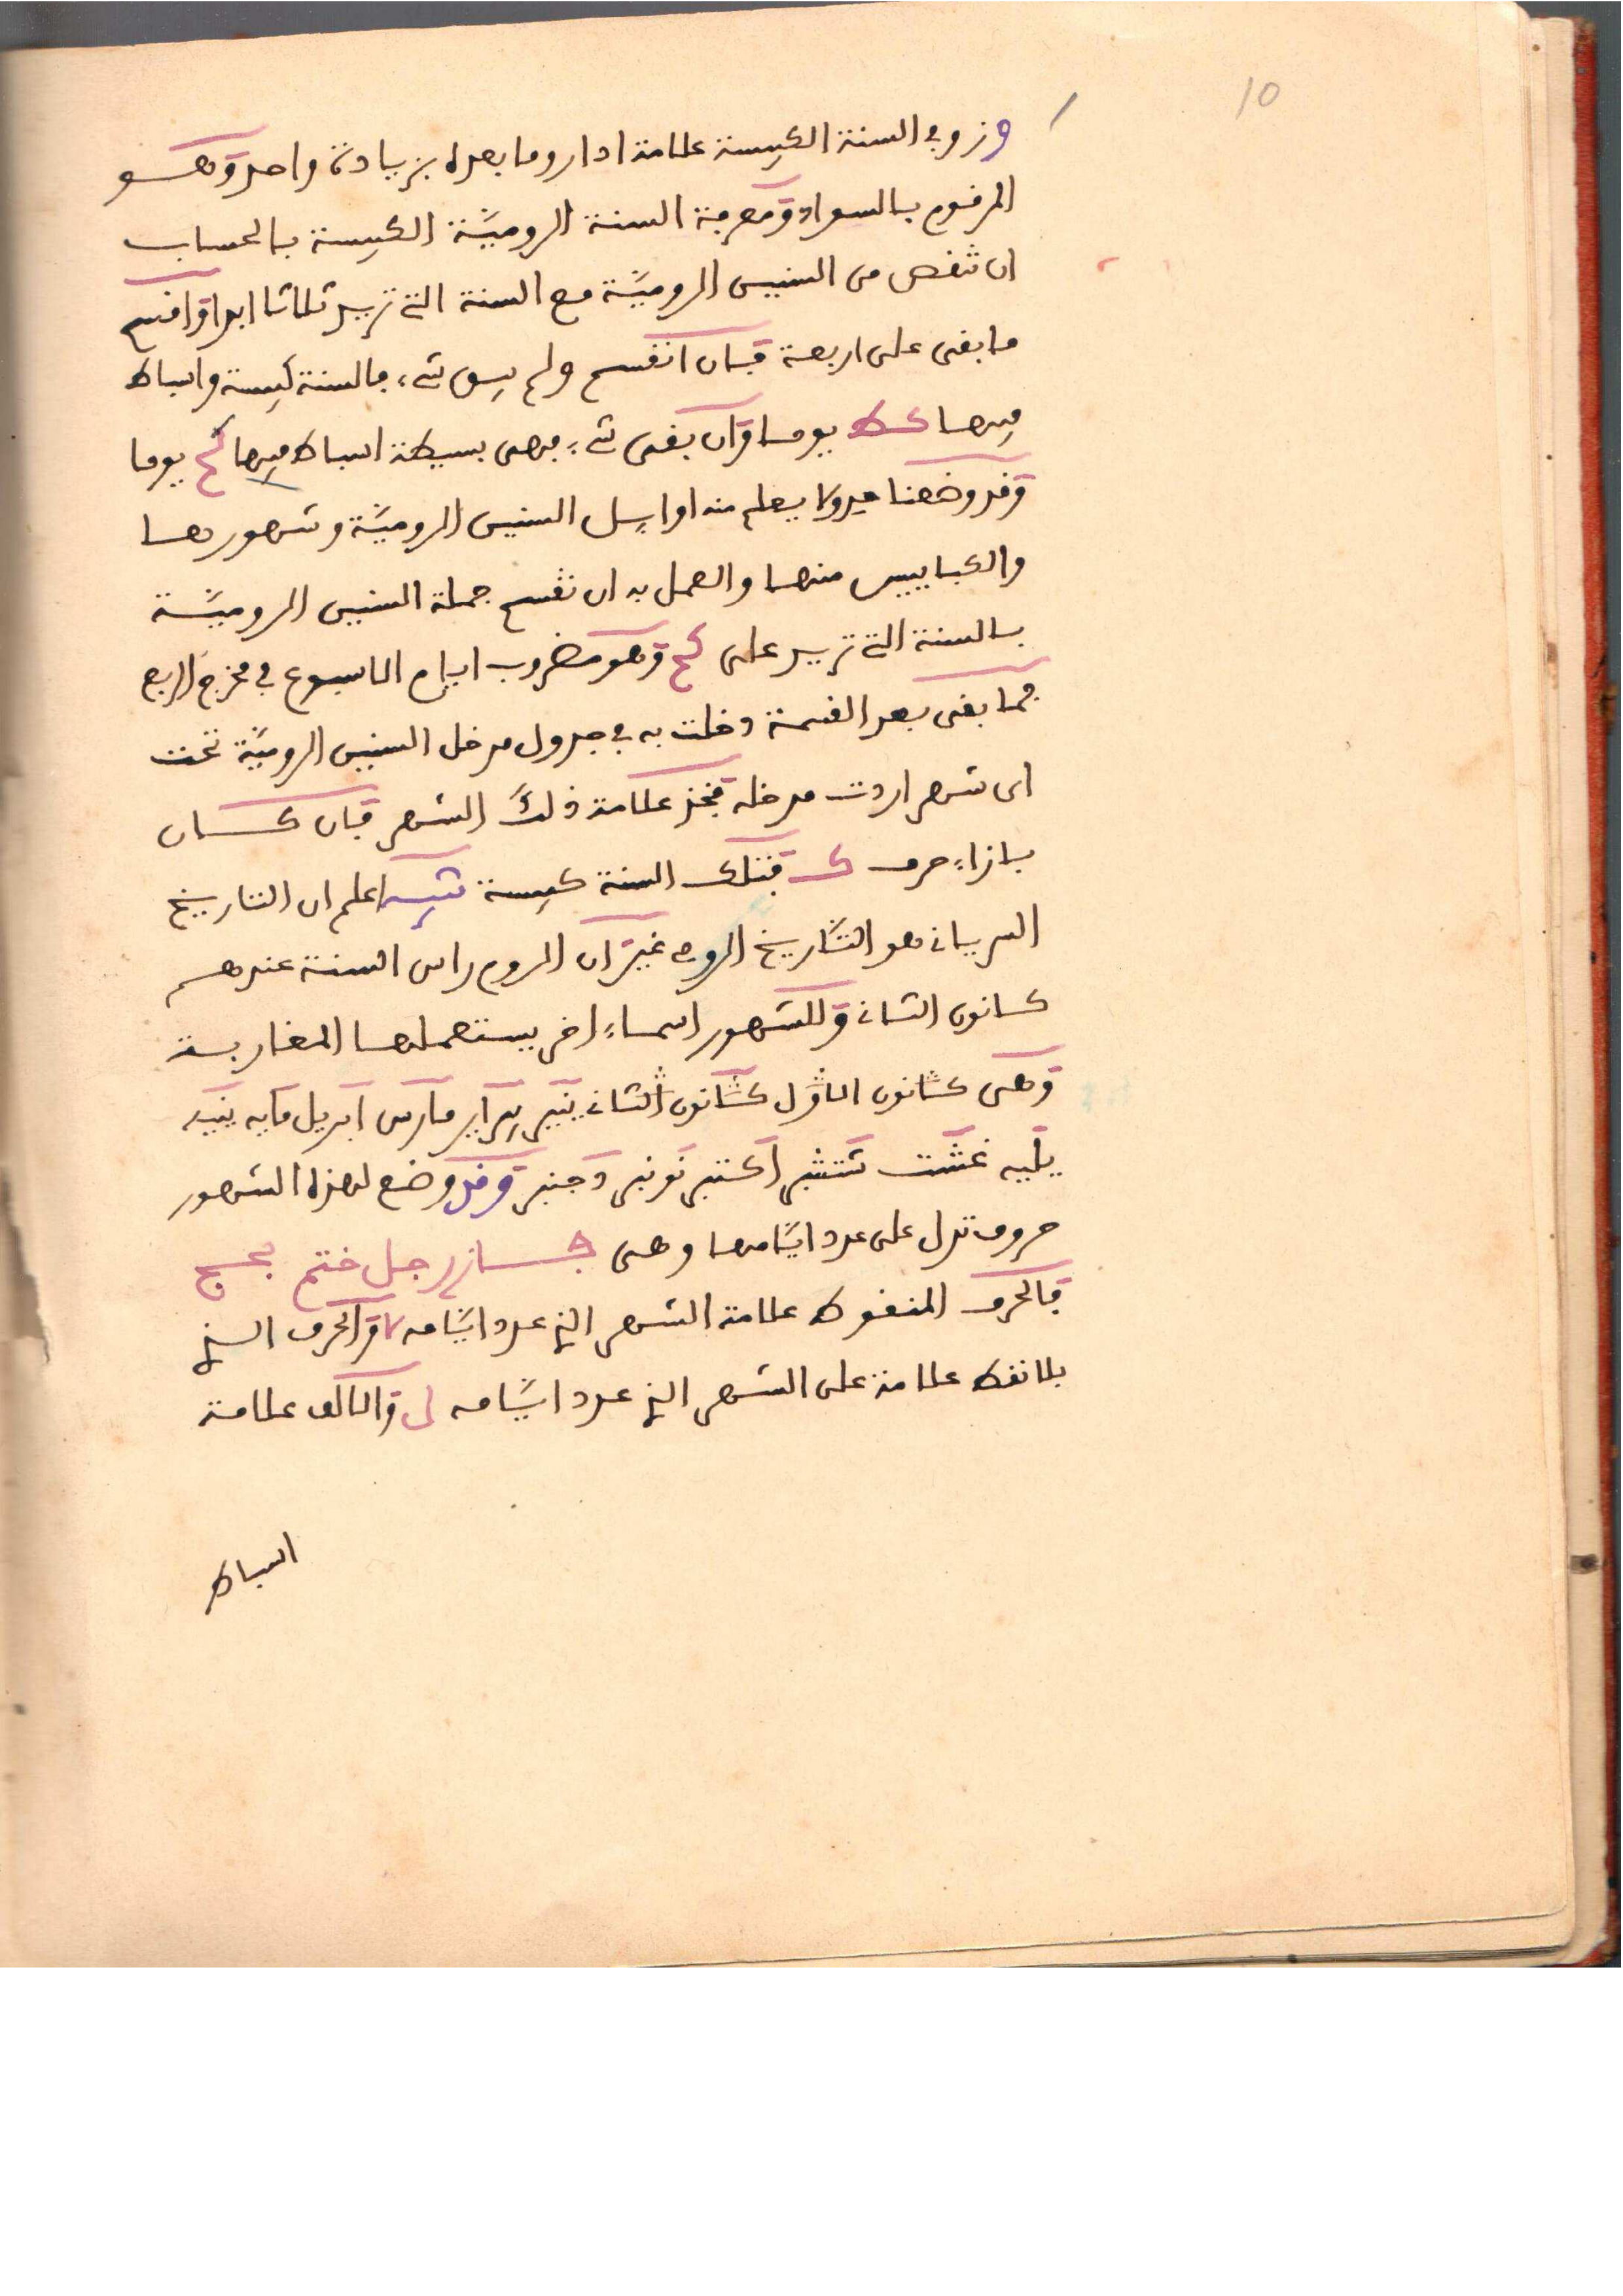 10
وز وفي السنة الكبيسة علامة ادار وما بعده بزيادة واحد وهو
المرقوم بالسواد ومعرفة السنة الروميّة الكبيسة بالحساب
ان تنقص من السنين الروميّة مع السنة التي تريد ثلاثا ابدا واقسم
ما بقى على اربعة فان انقسم ولم يبق شيء فالسنة كبيسة واشباط
فيها كط يوما وان بقى شيء فهى بسيطة اشباط فيها كح يوما
وقد وضعنا جدولا يعلم منه اوايل السنين الروميّة وشهورها
والكبايس منها والعمل به ان تقسم جملة السنين الروميّة
بالسنة التي تريد على كح وهو مضروب ايام الاسبوع في مخرج الربع
فما بقى بعد القسمة دخلت به في جدول مدخل السنين الروميّة تحت
اى شهر اردت مدخله فتجد علامة ذلك الشهر فان كان
بازاء حرف ك فتلك السنة كبيسة تنبيه اعلم ان التاريخ
السرياني هو التّاريخ الرومي غير ان الروم راس السنة عندهم
كانون الثاني وللشهور اسماء اخر يستعملها المغاربة
وهى كانون الاوّل كانون الثاني ينير يبراير مارس ابريل مايه ينيه
يليه غشت شتنبر اكتبر نونبر دجنبر وقد وضع لهذه الشهور
حروف تدل على عدد ايّامها وهى فاز رجل ختم بحج
فالحرف المنقوط علامة الشهر الذي عدد ايّامه لا والحرف الذي
بلا نقط علامة على الشهر الذي عدد ايّامه ل والالف علامة
اشباط